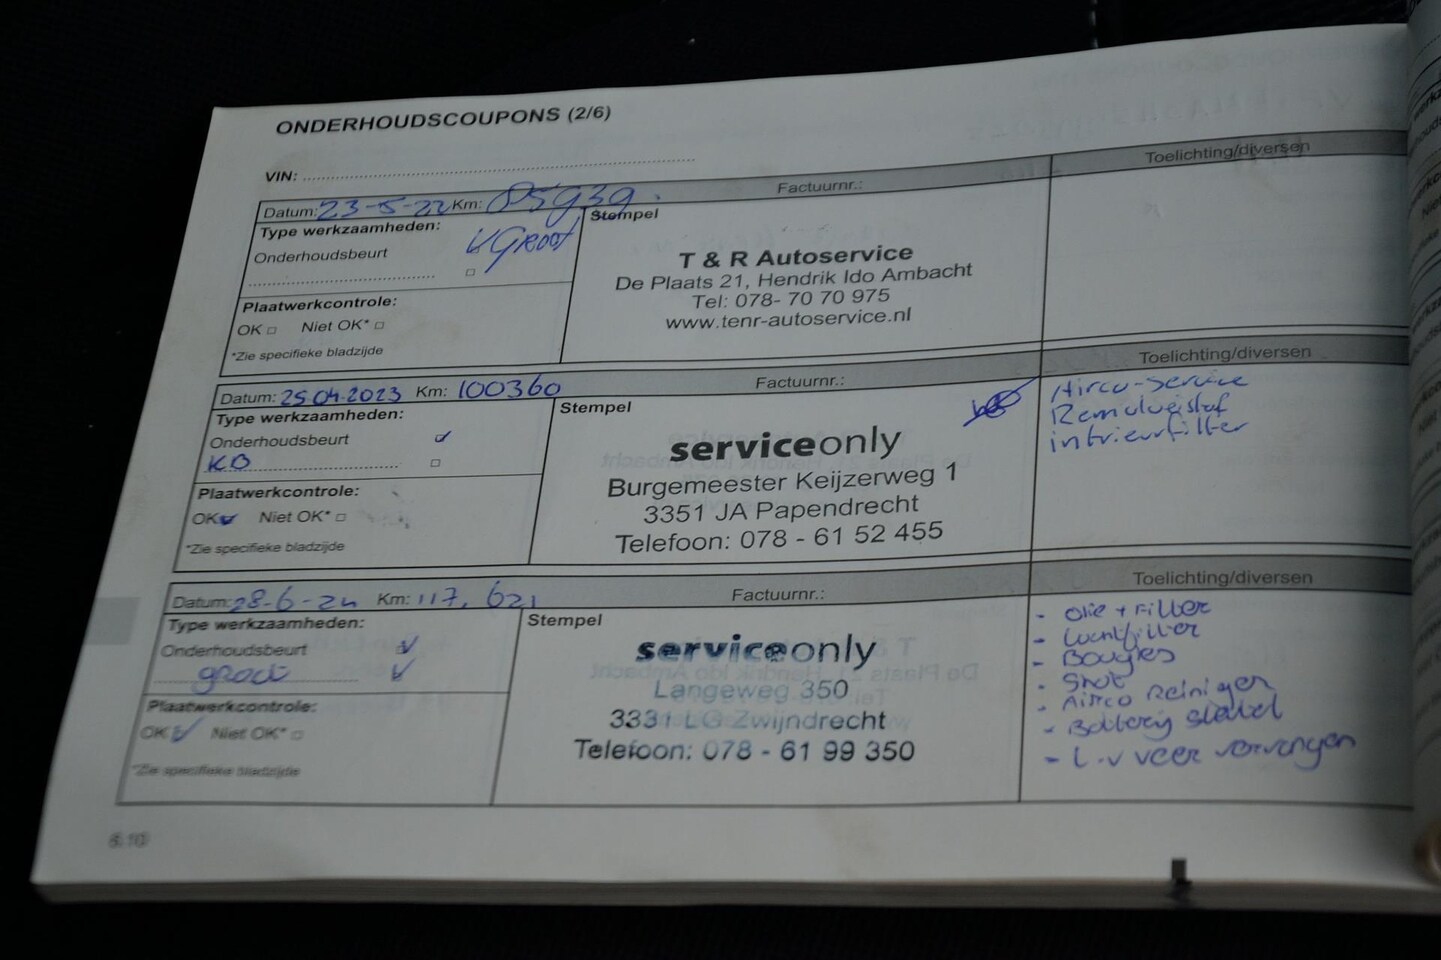 ONDERHOUDSCOUPONS (2/6)
VIN:
Datum: 23-5-22 Km: 85939. Factuurnr.: Toelichting/diversen
Type werkzaamheden: Stempel
Onderhoudsbeurt Groot
T & R Autoservice
De Plaats 21, Hendrik Ido Ambacht
Tel: 078- 70 70 975
www.tenr-autoservice.nl
Plaatwerkcontrole:
OK Niet OK*
*Zie specifieke bladzijde
Datum: 25.04.2023 Km: 100360 Factuurnr.: Toelichting/diversen
Type werkzaamheden: Stempel
Onderhoudsbeurt
KB
serviceonly
Burgemeester Keijzerweg 1
3351 JA Papendrecht
Telefoon: 078 - 61 52 455
Airco-service
Remvloeistof
intrieurfilter
Plaatwerkcontrole:
OK Niet OK*
*Zie specifieke bladzijde
Datum: 28-6-24 Km: 117,621 Factuurnr.: Toelichting/diversen
Type werkzaamheden: Stempel
Onderhoudsbeurt
groot
serviceonly
Langeweg 350
3331 LG Zwijndrecht
Telefoon: 078 - 61 99 350
- Olie + Filter
- Luchtfilter
- Bougies
- Airco Reiniger
- Battery
- L.v veer vervangen
Plaatwerkcontrole:
OK Niet OK*
*Zie specifieke bladzijde
6.10